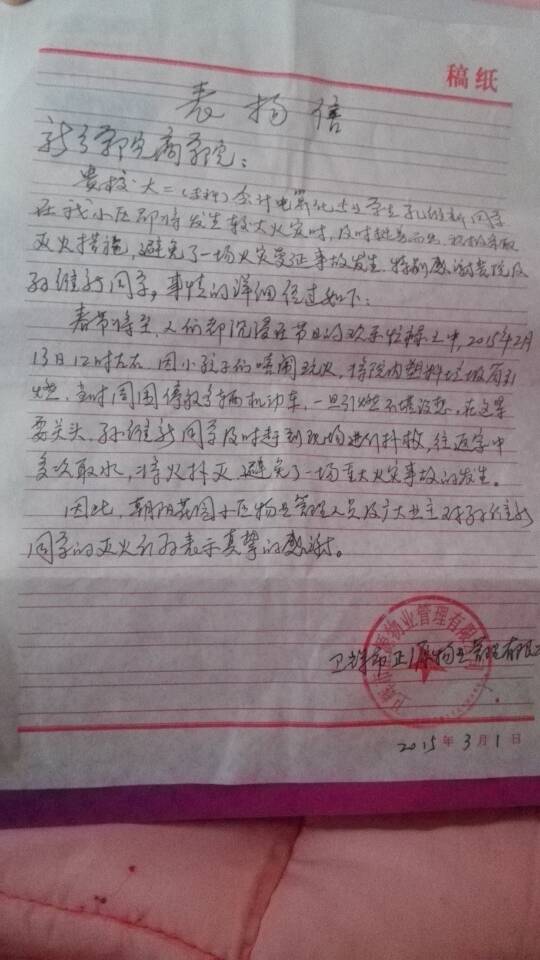 稿纸
表扬信
新乡学院商学院：
贵校大二（本科）会计电算化专业学生孙维新同学
在我小区即将发生较大火灾时，及时挺身而出，积极采取
灭火措施，避免了一场火灾事故发生，特别感谢贵院及
孙维新同学。事情的详细经过如下：
春节将至，人们都沉浸在节日的欢乐忙碌之中，2015年2月
13日12时左右，因小孩子们嬉闹玩火，将院内塑料垃圾箱引
燃，当时周围停放多辆机动车，一旦引燃不堪设想，在这紧
要关头，孙维新同学及时赶到现场进行扑救，往返家中
多次取水，将火扑灭，避免了一场重大火灾事故的发生。
因此，朝阳花园小区物业管理人员及广大业主对孙维新
同学的灭火行为表示真挚的感谢。
卫辉市正源物业管理有限
2015年3月1日